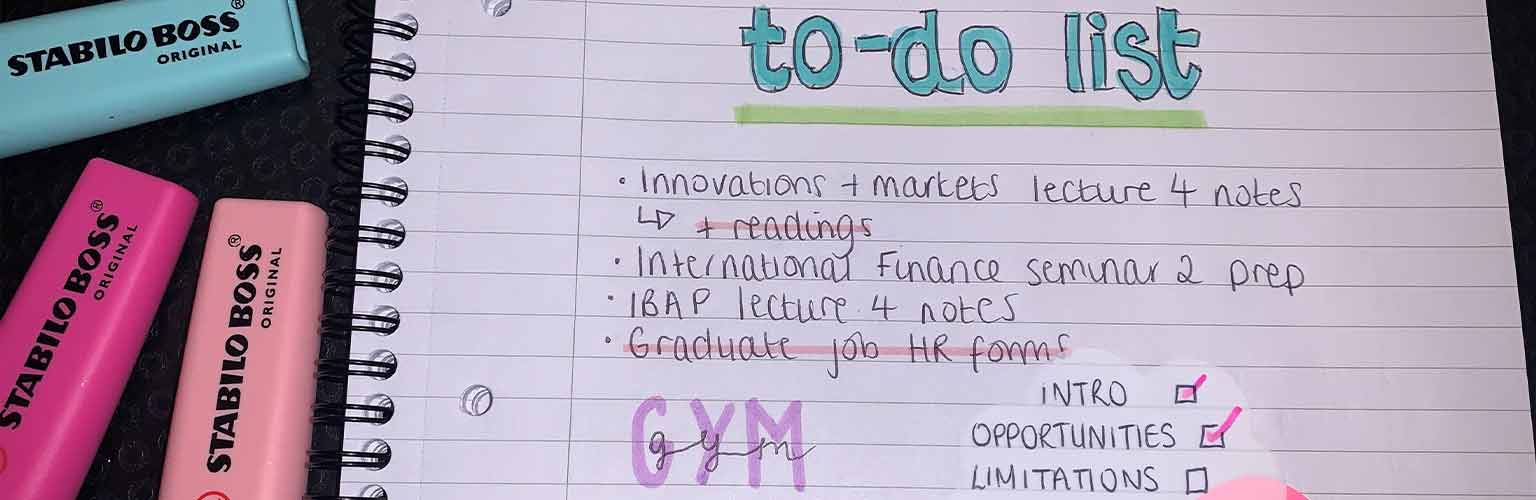 STABILO BOSS®
ORIGINAL
STABILO BOSS®
ORIGINAL
STABILO BOSS®
ORIGINAL
to-do list
• Innovations + markets lecture 4 notes
↳ + readings
• International Finance seminar 2 prep
• IBAP lecture 4 notes
• Graduate job HR forms
GYM
gym
INTRO ☑
OPPORTUNITIES ☑
LIMITATIONS ☐